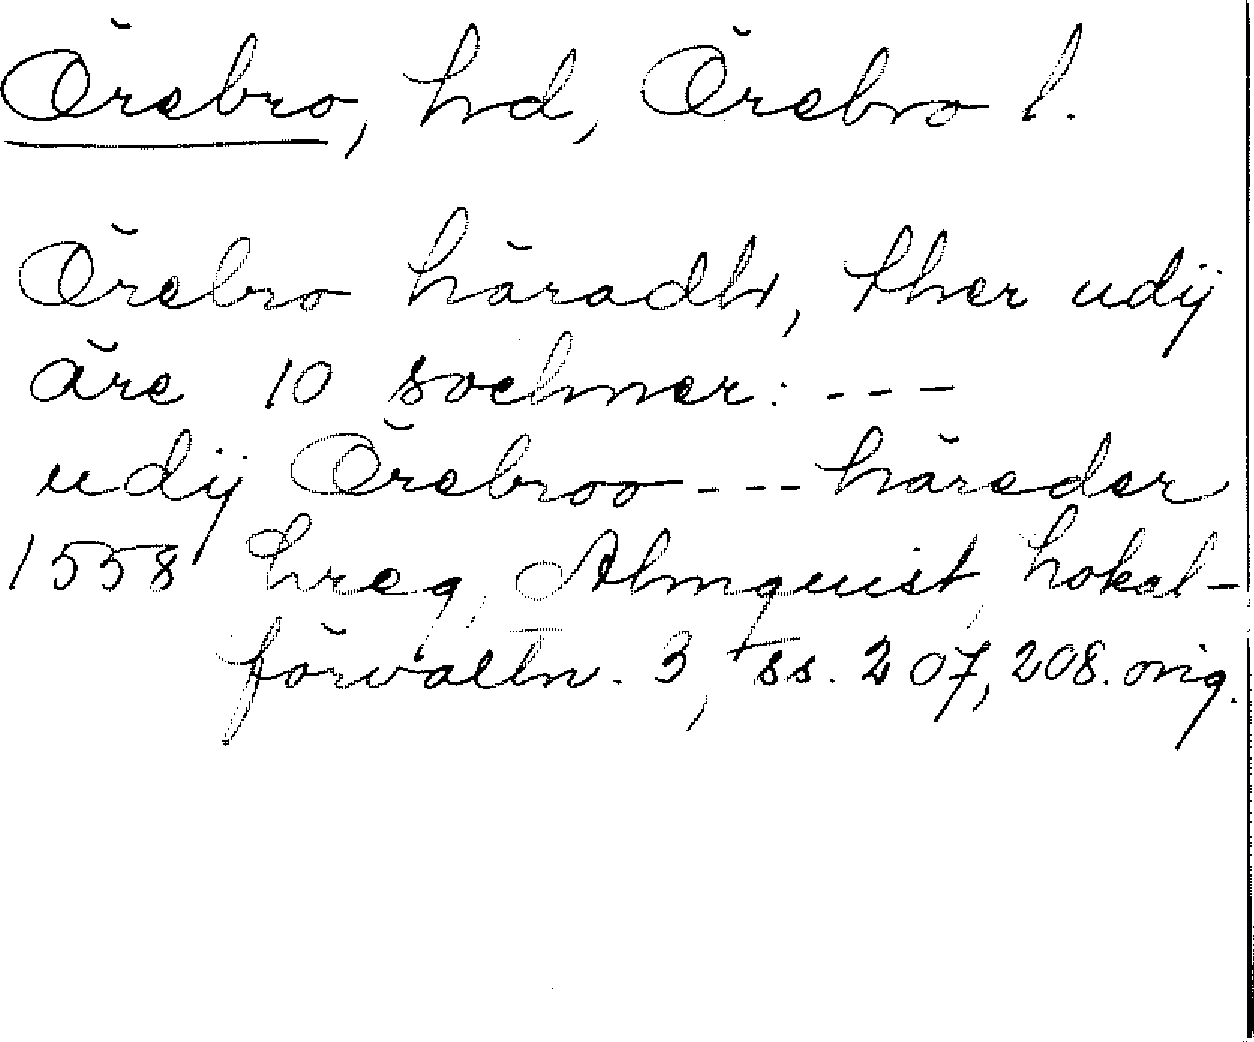 Örebro, hd, Örebro l.
Örebro häradh, ther udij
äre 10 sochner: ---
udij Örebroo --- häreder
1558 hreg, Almquist, Lokal-
förvaltn. 3, ss. 207, 208. orig.